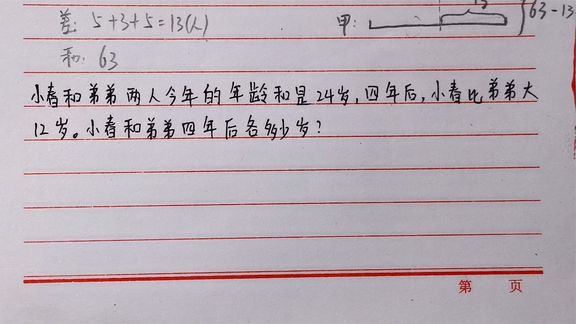 差: 5+3+5=13(人)
甲:
63-13
和: 63
小春和弟弟两人今年的年龄和是24岁,四年后,小春比弟弟大
12岁。小春和弟弟四年后各多少岁?
第 页